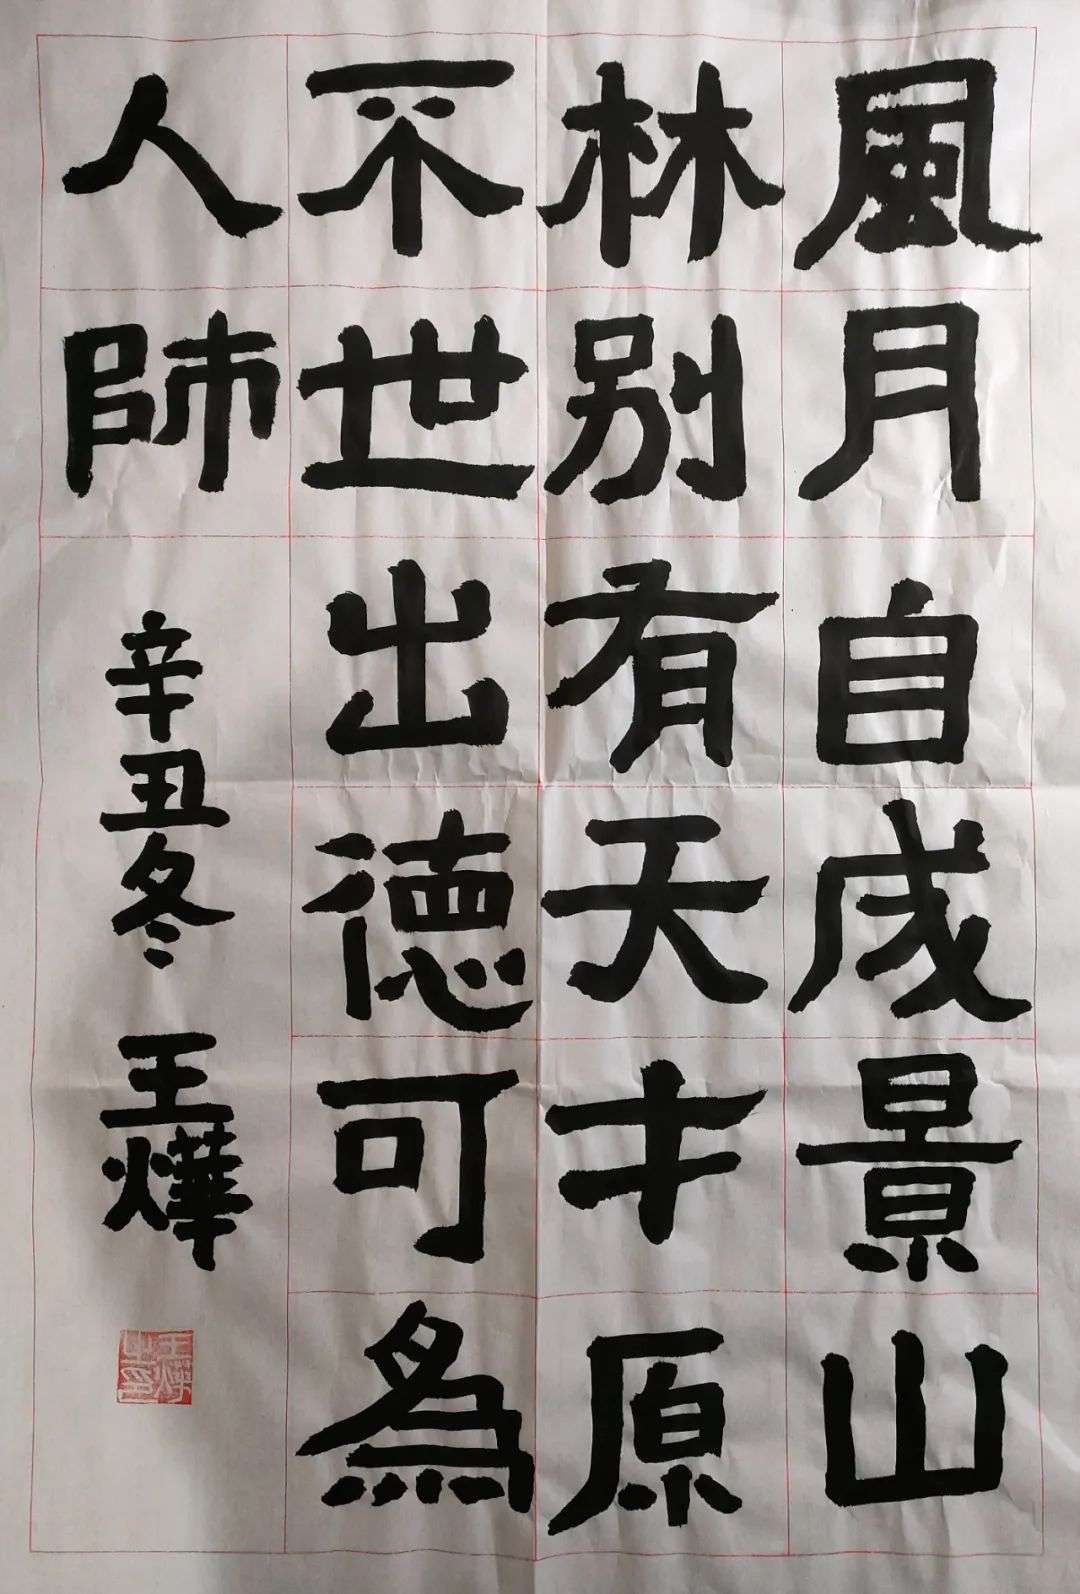 風月自成景山
林別有天才原
不世出德可為
人師
辛丑冬 王燁
王燁之印